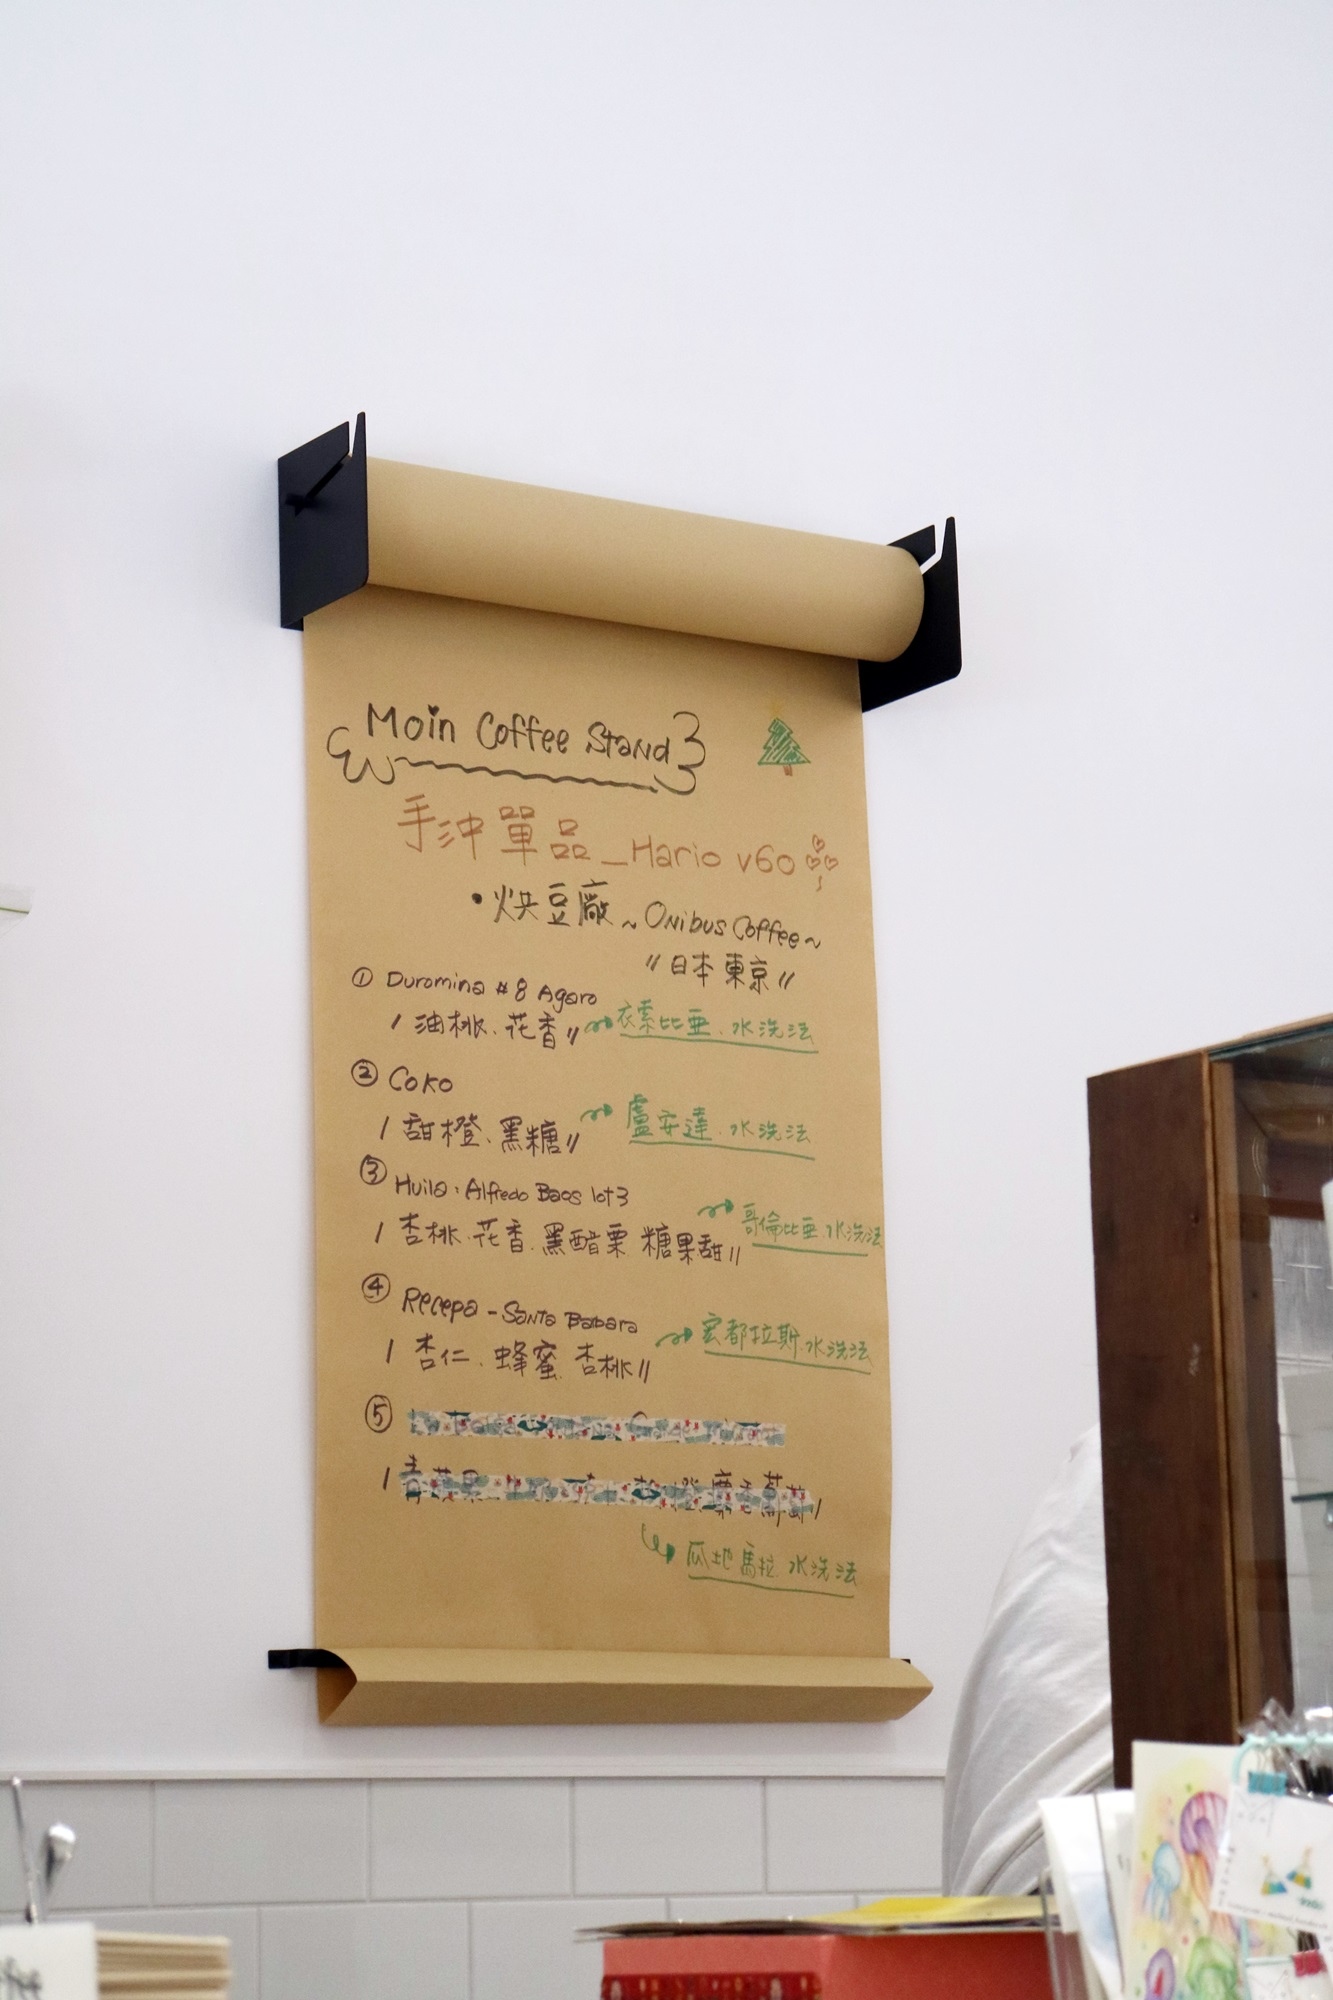 Moin Coffee Stand
手沖單品_Hario v60
•烘豆廠~Onibus Coffee~
〃日本東京〃
① Duromina #8 Agaro
/ 油桃、花香〃
衣索比亞.水洗法
② Coko
/ 甜橙、黑糖〃
盧安達.水洗法
③ Huila:Alfredo Baos lot3
/ 杏桃.花香.黑醋栗 糖果甜〃
哥倫比亞.水洗法
④ Recepa-Santa Babara
/ 杏仁.蜂蜜 杏桃〃
宏都拉斯.水洗法
⑤
/ 青蘋果
瓜地馬拉.水洗法